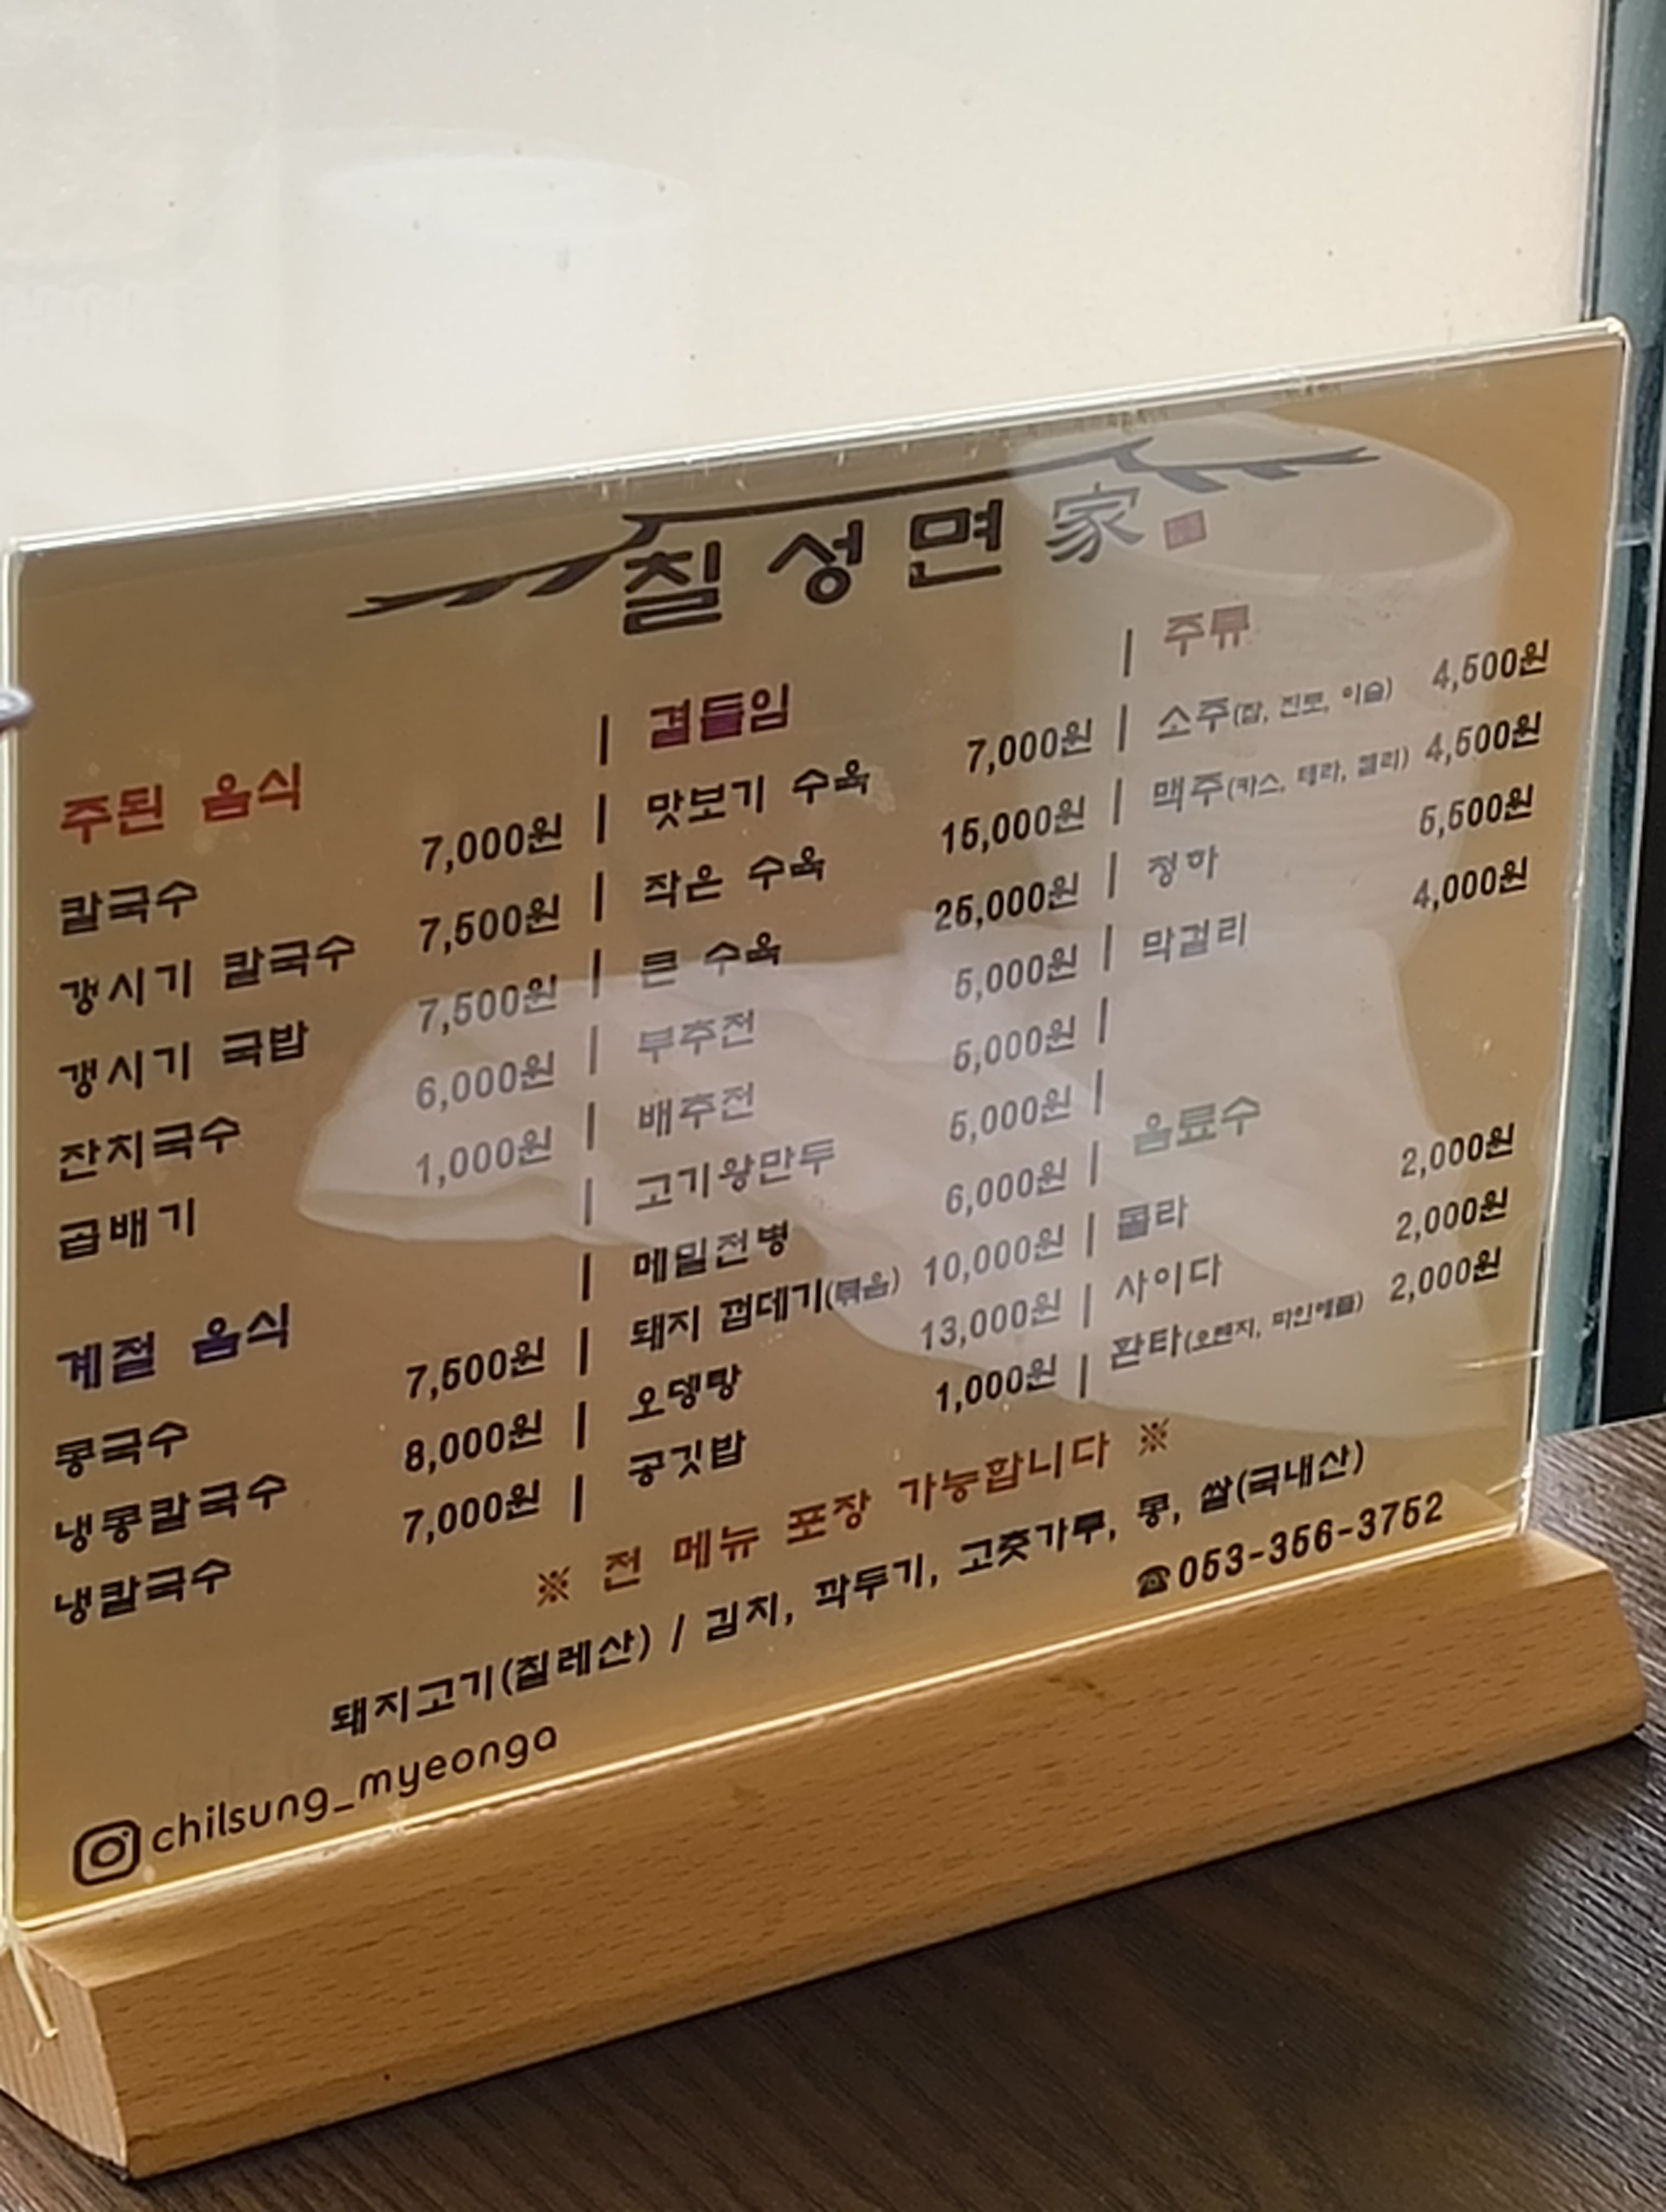 칠성면家
주된 음식
칼국수 7,000원
갱시기 칼국수 7,500원
갱시기 국밥 7,500원
잔치국수 6,000원
곱배기 1,000원
계절 음식
콩국수 7,500원
냉콩칼국수 8,000원
냉칼국수 7,000원
곁들임
맛보기 수육 7,000원
작은 수육 15,000원
큰 수육 25,000원
부추전 5,000원
배추전 5,000원
고기왕만두 5,000원
메밀전병 6,000원
돼지 껍데기(볶음) 10,000원
오뎅탕 13,000원
공깃밥 1,000원
주류
소주(참, 진로, 이슬) 4,500원
맥주(카스, 테라, 켈리) 4,500원
청하 5,500원
막걸리 4,000원
음료수
콜라 2,000원
사이다 2,000원
환타(오렌지, 파인애플) 2,000원
※ 전 메뉴 포장 가능합니다 ※
돼지고기(칠레산) / 김치, 깍두기, 고춧가루, 콩, 쌀(국내산)
☎053-356-3752
chilsung_myeonga